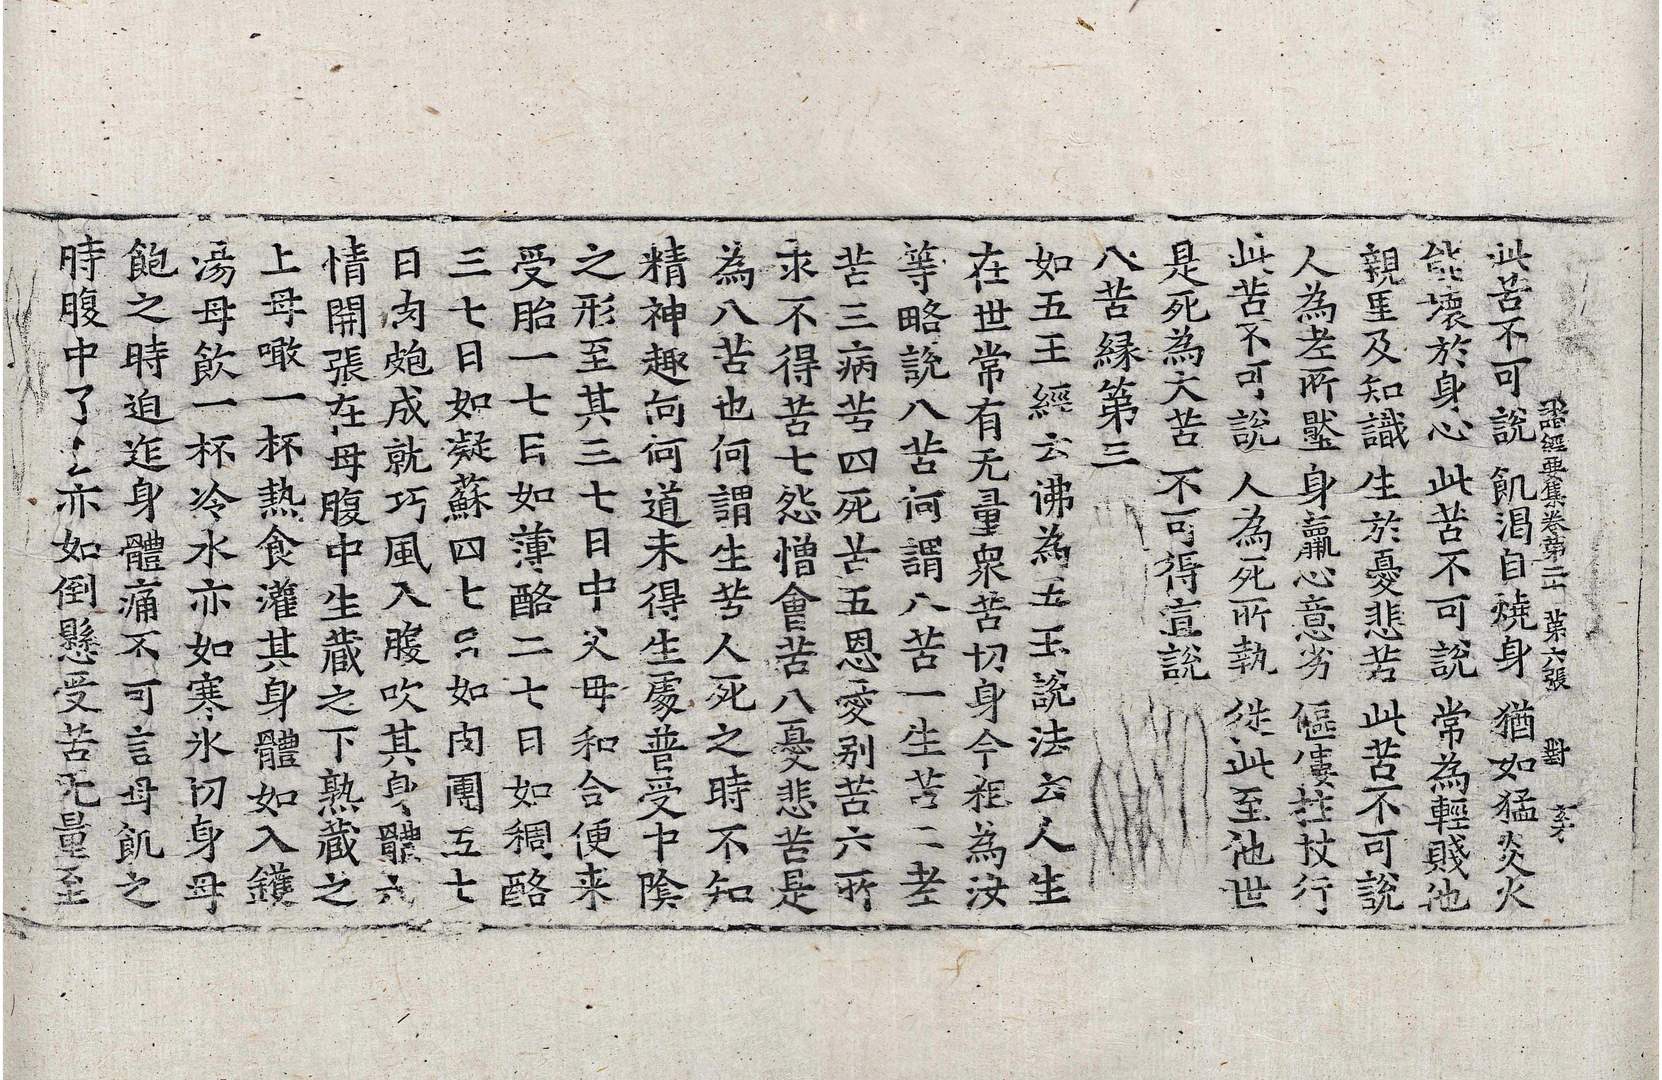 諸經要集卷第二十 第六張 對
此苦不可說 飢渴自燒身 猶如猛炎火
能壞於身心 此苦不可說 常為輕賤他
親里及知識 生於憂悲苦 此苦不可說
人為老所壓 身羸心意劣 傴僂拄杖行
此苦不可說 人為死所執 從此至他世
是死為大苦 不可得宣說
八苦緣第三
如五王經云佛為五王說法云人生
在世常有无量衆苦切身今粗為汝
等略說八苦何謂八苦一生苦二老
苦三病苦四死苦五恩愛別苦六所
求不得苦七怨憎會苦八憂悲苦是
為八苦也何謂生苦人死之時不知
精神趣向何道未得生處普受中陰
之形至其三七日中父母和合便来
受胎一七日如薄酪二七日如稠酪
三七日如凝蘇四七日如肉團五七
日肉皰成就巧風入腹吹其身體六
情開張在母腹中生蔵之下熟蔵之
上母噉一杯熱食灌其身體如入鑊
湯母飲一杯冷水亦如寒氷切身母
飽之時迫迮身體痛不可言母飢之
時腹中了了亦如倒懸受苦无量至